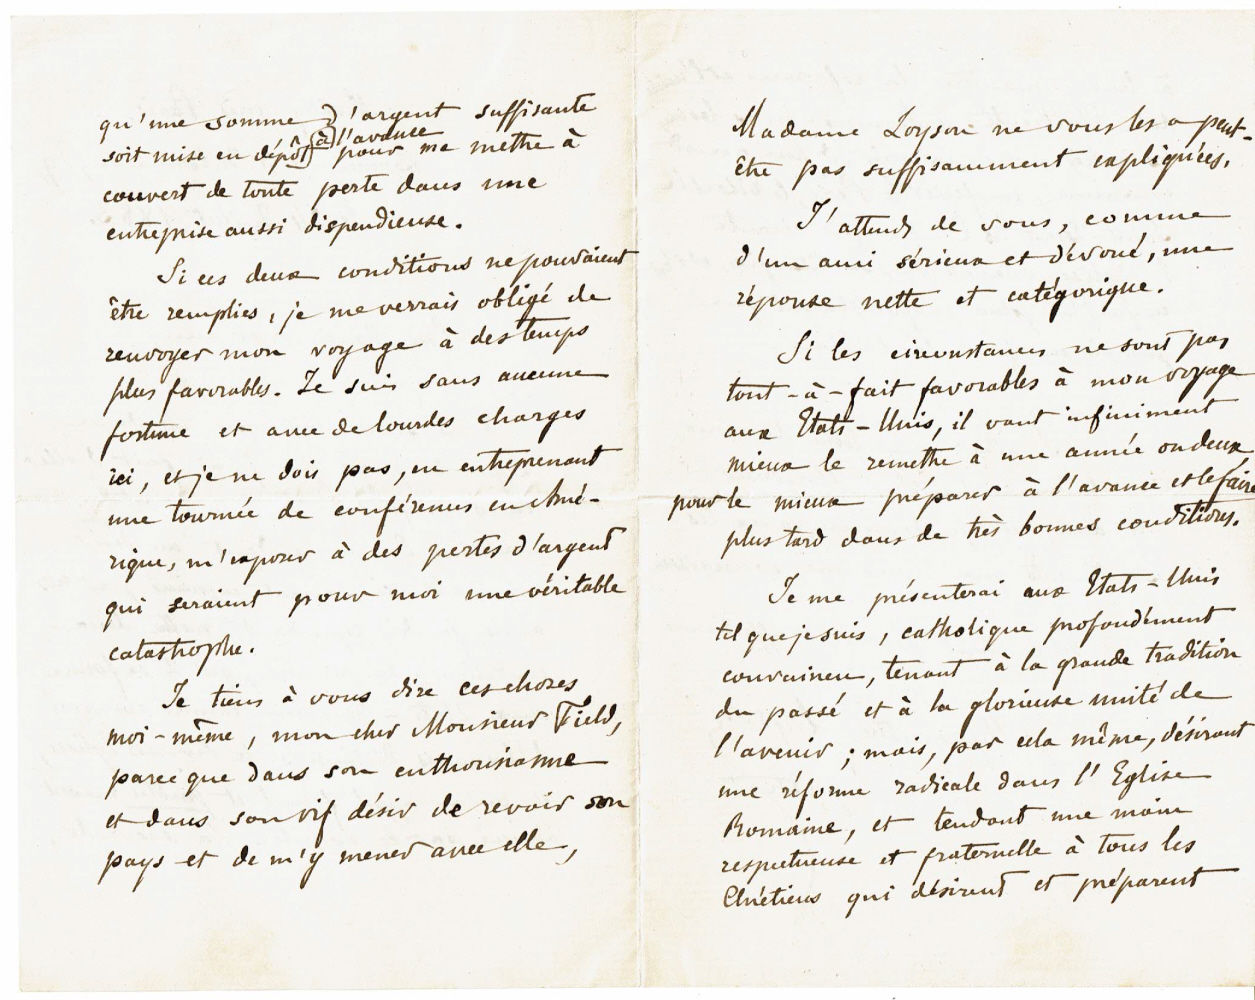 qu'une somme d'argent suffisante
soit mise en dépôt à l'avance pour me mettre à
couvert de toute perte dans une
entreprise aussi dispendieuse.
Si ces deux conditions ne pouvaient
être remplies, je me verrais obligé de
renvoyer mon voyage à des temps
plus favorables. Je suis sans aucune
fortune et avec de lourdes charges
ici, et je ne dois pas, en entreprenant
une tournée de conférences en Amé-
rique, m'exposer à des pertes d'argent
qui seraient pour moi une véritable
catastrophe.
Je tiens à vous dire ces choses
moi-même, mon cher Monsieur Field,
parce que dans son enthousiasme
et dans son vif désir de revoir son
pays et de m'y mener avec elle,
Madame Loyson ne vous les a peut-
être pas suffisamment expliquées.
J'attends de vous, comme
d'un ami sérieux et dévoué, une
réponse nette et catégorique.
Si les circonstances ne sont pas
tout-à-fait favorables à mon voyage
aux Etats-Unis, il vaut infiniment
mieux le remettre à une année ou deux
pour le mieux préparer à l'avance et le faire
plus tard dans de très bonnes conditions.
Je me présenterai aux Etats-Unis
tel que je suis, catholique profondément
convaincu, tenant à la grande tradition
du passé et à la glorieuse unité de
l'avenir ; mais, par cela même, désirant
une réforme radicale dans l'Eglise
Romaine, et tendant une main
respectueuse et fraternelle à tous les
Chrétiens qui désirent et préparent